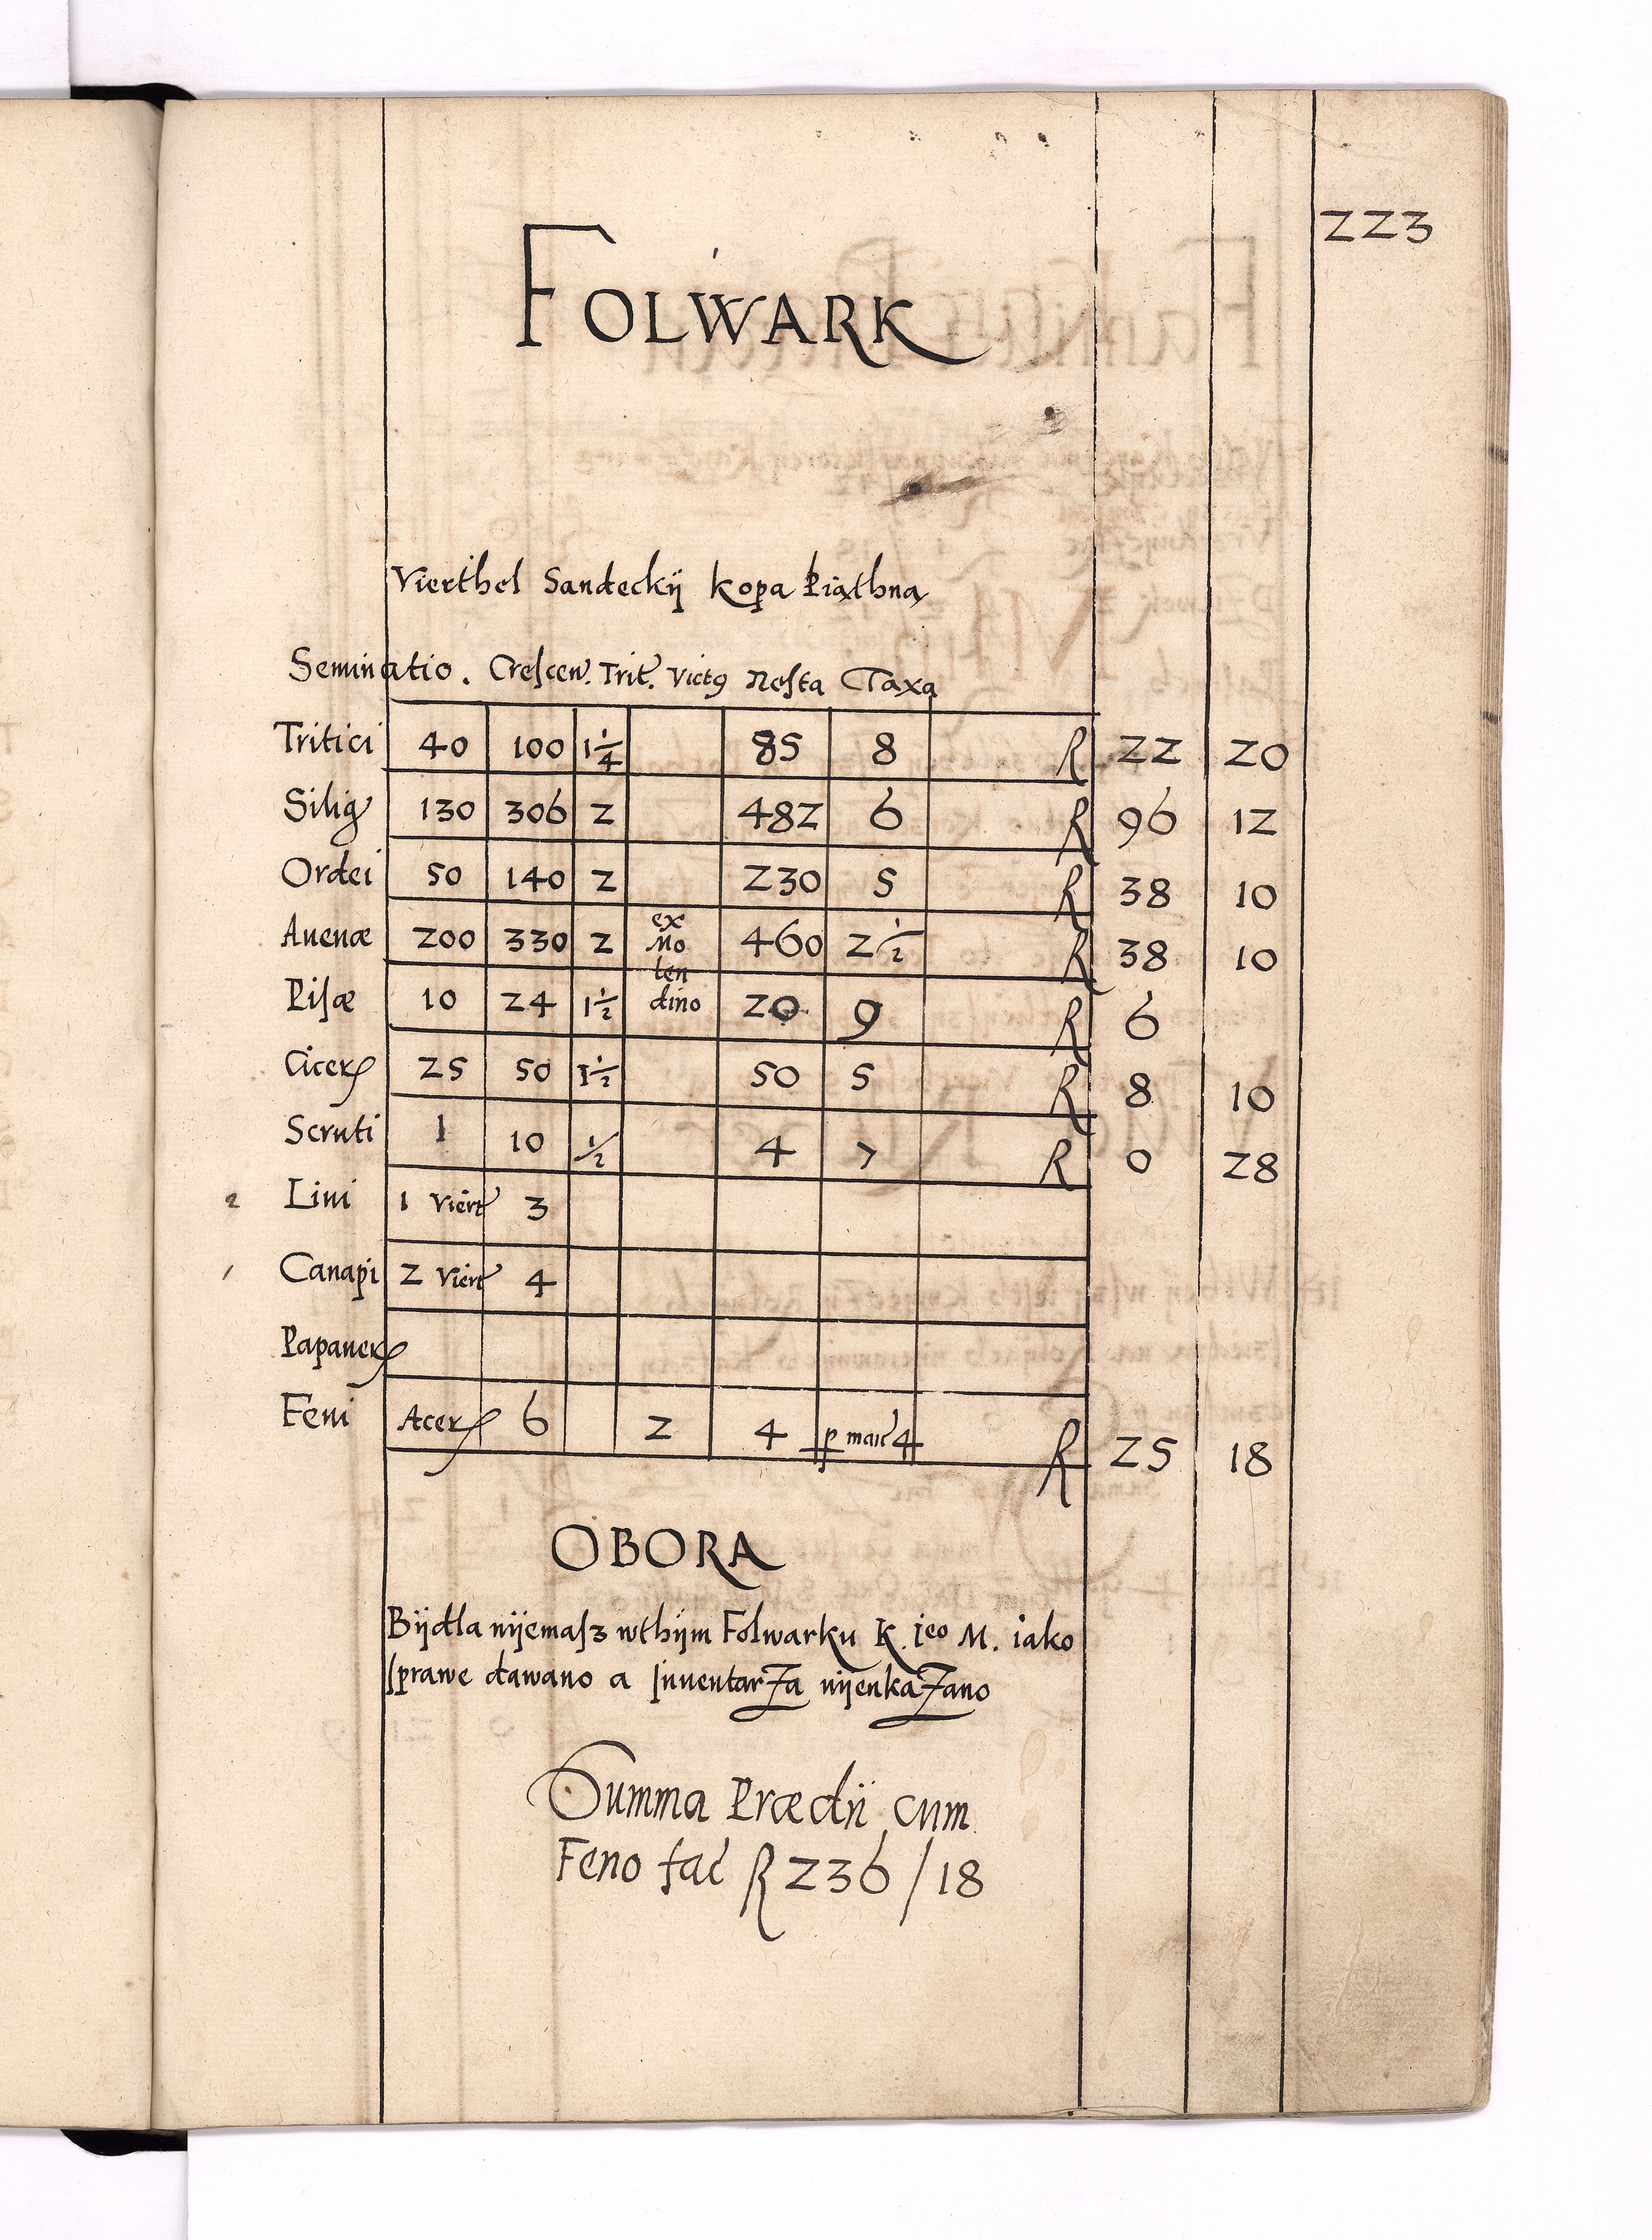 223
FOLWARK
Vierthel Sandeckij kopa Piąthna
Seminatio. Crescen. Trit. Vict9 Resta Taxa
Tritici 40 100 1 1/4 85 8 R 22 20
Silig 130 306 2 482 6 R 96 12
Ordei 50 140 2 230 5 R 38 10
Auenæ 200 330 2 ex Mo len dino 460 2 1/2 R 38 10
Pisæ 10 24 1 1/2 20 9 R 6
Cicer 25 50 1 1/2 50 5 R 8 10
Scruti 1 10 1/2 4 7 R 0 28
2 Lini 1 Viert 3
1 Canapi 2 Viert 4
Papauer
Feni Acer 6 2 4 p marc 4 R 25 18
OBORA
Bijdla nijemasz wthijm Folwarku K. Jeo M. iako
sprawe dawano a Inuentarza nijenkazano
Summa Prædij cum
Feno fac R 236/18